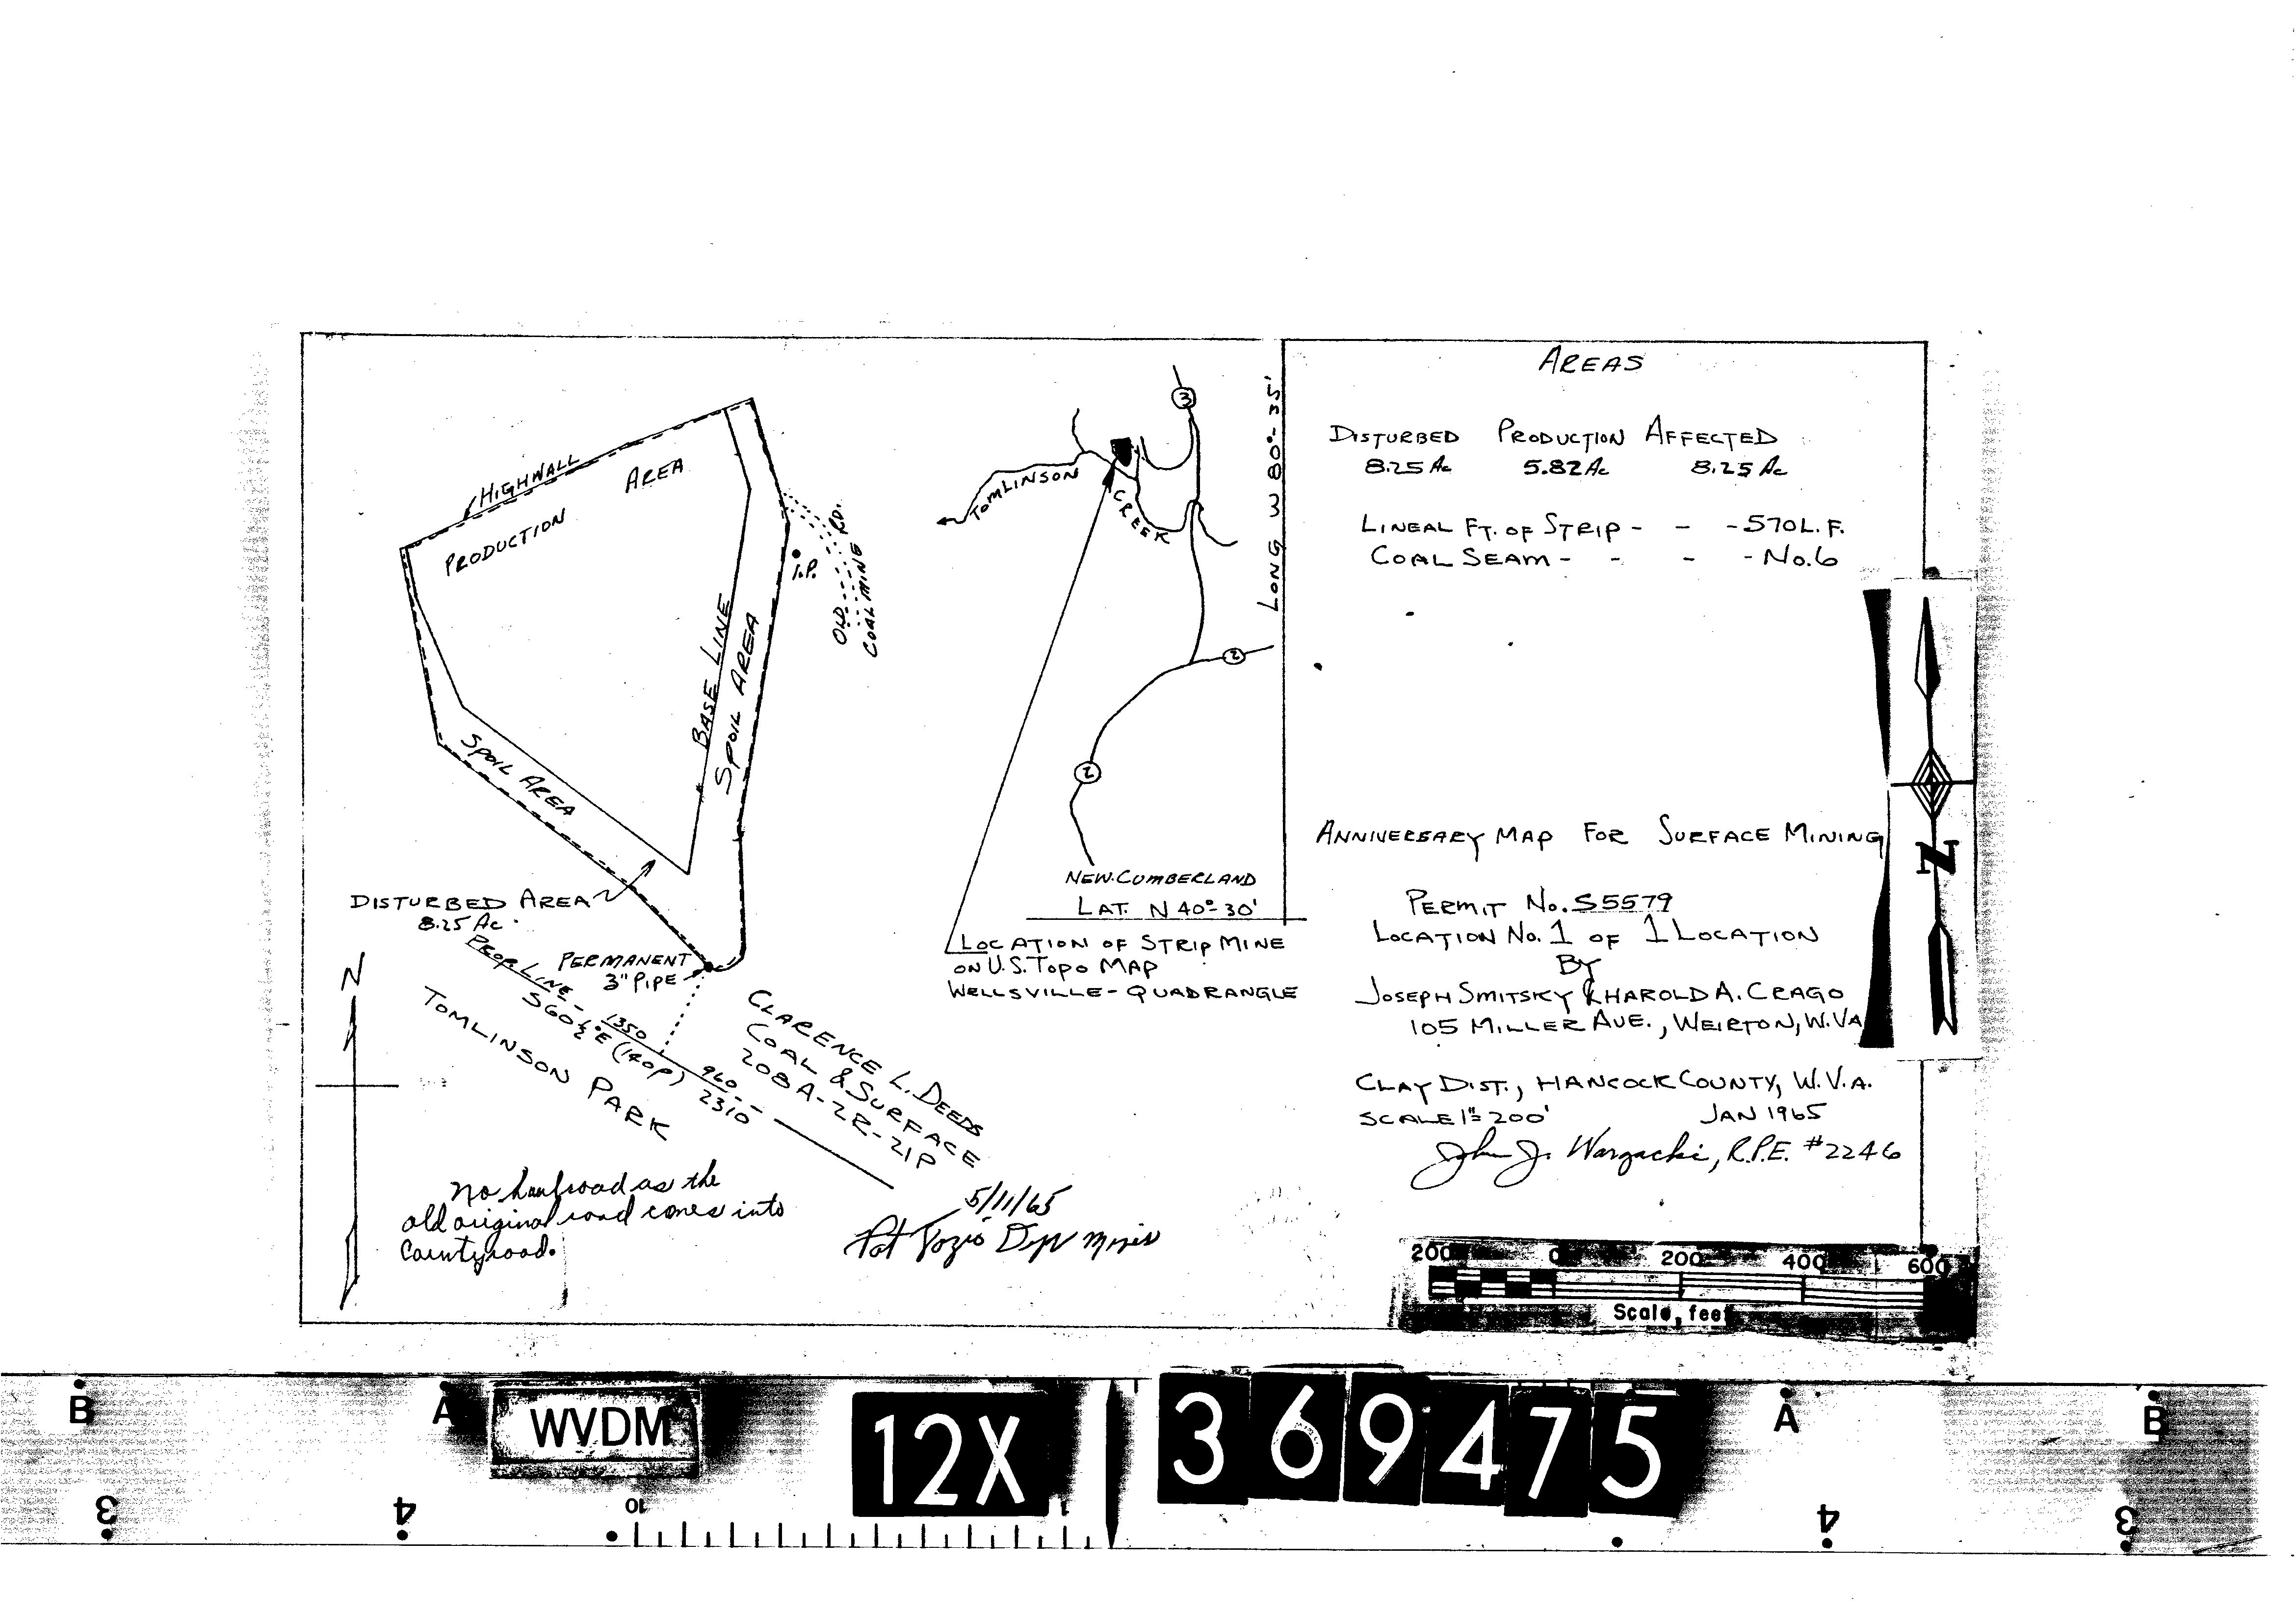 AREAS
DISTURBED PRODUCTION AFFECTED
8.25 Ac 5.82 Ac 8.25 Ac
LINEAL FT. OF STRIP - - - 570 L.F.
COAL SEAM - - - - No. 6
HIGHWALL
PRODUCTION AREA
BASE LINE
SPOIL AREA
SPOIL AREA
I.P.
OLD
COAL MINE RD.
DISTURBED AREA
8.25 Ac.
PERMANENT
3" PIPE
PROP LINE -
S60½°E (140P)
1350
960
2310
TOMLINSON PARK
CLARENCE L. DEEDS
COAL & SURFACE
208A-2R-21P
N
3
TOMLINSON
CREEK
LONG W 80°-35'
2
2
NEW CUMBERLAND
LAT. N 40°-30'
LOCATION OF STRIP MINE
ON U.S. TOPO MAP
WELLSVILLE - QUADRANGLE
No haulroad as the
old original road comes into
County road.
5/11/65
Pat Dept Mines
ANNIVERSARY MAP FOR SURFACE MINING
PERMIT No. S5579
LOCATION No. 1 OF 1 LOCATION
BY
JOSEPH SMITSKY & HAROLD A. CRAGO
105 MILLER AVE., WEIRTON, W.VA
CLAY DIST., HANCOCK COUNTY, W.V.A.
SCALE 1"=200' JAN 1965
John J. Wargacki, R.P.E. #2246
N
200 0 200 400 600
Scale, feet
B A WVDM 12X 369475 A B
3 4 10 4 3